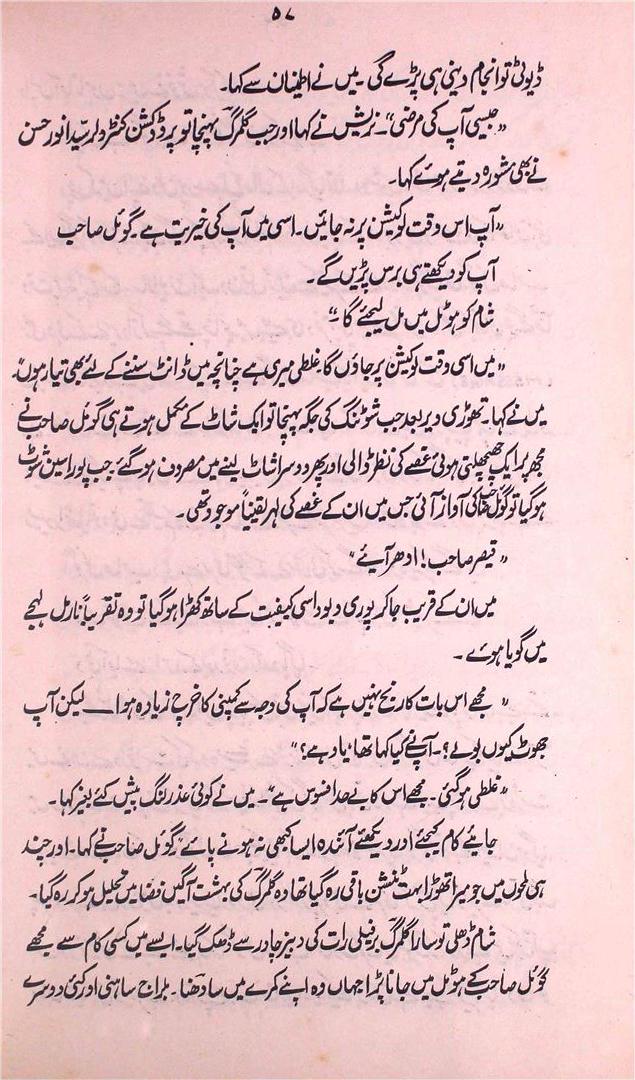 ۵۷
ڈیوٹی تو انجام دینی ہی پڑے گی۔ میں نے اطمینان سے کہا۔
"جیسی آپ کی مرضی"۔ نریش نے کہا اور جب گلمرگ پہنچا تو پروڈکشن کنٹرولر سیّد انور حسن
نے بھی مشورہ دیتے ہوئے کہا۔
"آپ اس وقت لوکیشن پر نہ جائیں۔ اسی میں آپ کی خیریت ہے۔ گوئل صاحب
آپ کو دیکھتے ہی برس پڑیں گے۔
شام کو ہوٹل میں مل لیجئے گا۔"
"میں اسی وقت لوکیشن پر جاؤں گا۔ غلطی میری ہے چنانچہ میں ڈانٹ سننے کے لئے بھی تیار ہوں"۔
میں نے کہا۔ تھوڑی دیر بعد جب شوٹنگ کی جگہ پہنچا تو ایک شاٹ کے مکمل ہوتے ہی گوئل صاحب نے
مجھ پر ایک چھچھلتی ہوئی غصے کی نظر ڈالی اور پھر دوسرا شاٹ لینے میں مصروف ہو گئے۔ جب پورا سین شوٹ
ہو گیا تو گوئل صاحب کی آواز آئی جس میں ان کے غصے کی لہر یقیناً موجود تھی۔
"قیصر صاحب! ادھر آیئے"
میں ان کے قریب جا کر پوری دیوداسی کیفیت کے ساتھ کھڑا ہو گیا تو وہ تقریباً نارمل لہجے
میں گویا ہوئے۔
"مجھے اس بات کا رنج نہیں ہے کہ آپ کی وجہ سے کمپنی کا خرچ زیادہ ہوا ــــ لیکن آپ
جھوٹ کیوں بولے؟۔ آپ نے کیا کہا تھا، یاد ہے؟"
"غلطی ہو گئی۔ مجھے اس کا بے حد افسوس ہے"۔ میں نے کوئی عذر لنگ پیش کئے بغیر کہا۔
جایئے کام کیجئے اور دیکھئے آئندہ ایسا کبھی نہ ہونے پائے" گوئل صاحب نے کہا۔ اور چند
ہی لمحوں میں جو میرا تھوڑا بہت ٹینشن باقی رہ گیا تھا وہ گلمرگ کی بہشت آگیں فضا میں تحلیل ہو کر رہ گیا۔
شام ڈھلی تو سارا گلمرگ برفیلی رات کی دبیز چادر سے ڈھک گیا۔ ایسے میں کسی کام سے مجھے
گوئل صاحب کے ہوٹل میں جانا پڑا جہاں وہ اپنے کمرے میں سادھنا۔ بلراج ساہنی اور کئی دوسرے